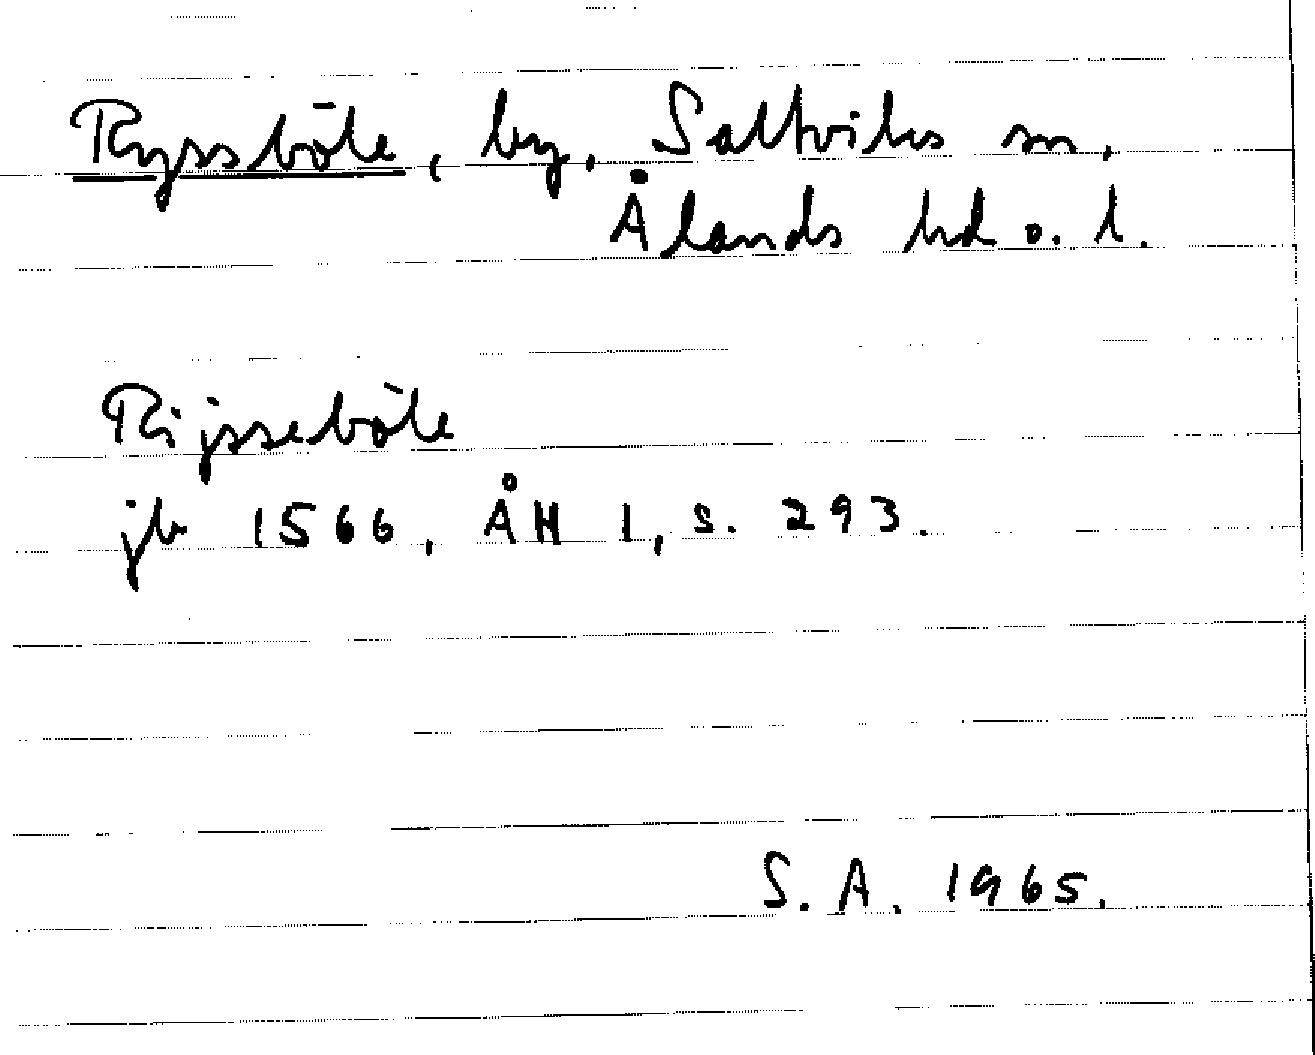 Ryssböle, by, Saltviks sn,
Ålands hd o. l.
Rijsseböle
jb 1566, ÅH 1, s. 293.
S. A. 1965.